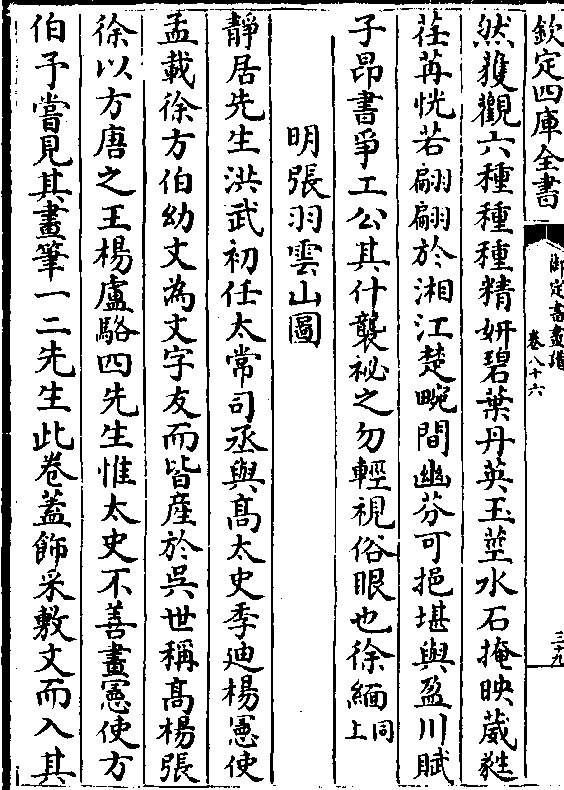 欽定四庫全書
御定書畫譜
卷八十六
三十九
然獲觀六種種種精妍碧葉丹英玉莖水石掩映葳蕤
荏苒恍若翩翩於湘江楚畹間幽芬可挹堪與盈川賦
子昂書爭工公其什襲祕之勿輕視俗眼也徐緬同上
明張羽雲山圖
靜居先生洪武初任太常司丞與高太史季迪楊憲使
孟載徐方伯幼文為文字友而皆産於吳世稱高楊張
徐以方唐之王楊盧駱四先生惟太史不善畫憲使方
伯予嘗見其畫筆一二先生此卷蓋飾采敷文而入其